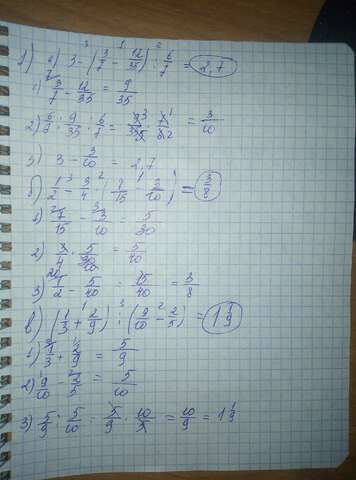 1) а) 3 - (3/7 - 12/35) : 6/7 = 2,7
1) 3/7 - 12/35 = 9/35
2) 9/35 : 6/7 = 9/35 · 7/6 = 3/10
3) 3 - 3/10 = 2,7
б) 1/2 - 3/4 · (7/15 - 3/10) = 3/8
1) 7/15 - 3/10 = 5/30
2) 3/4 · 5/30 = 5/40
3) 1/2 - 5/40 = 15/40 = 3/8
в) (1/3 + 2/9) : (9/10 - 2/5) = 1 1/9
1) 1/3 + 2/9 = 5/9
2) 9/10 - 2/5 = 5/10
3) 5/9 : 5/10 = 5/9 · 10/5 = 10/9 = 1 1/9